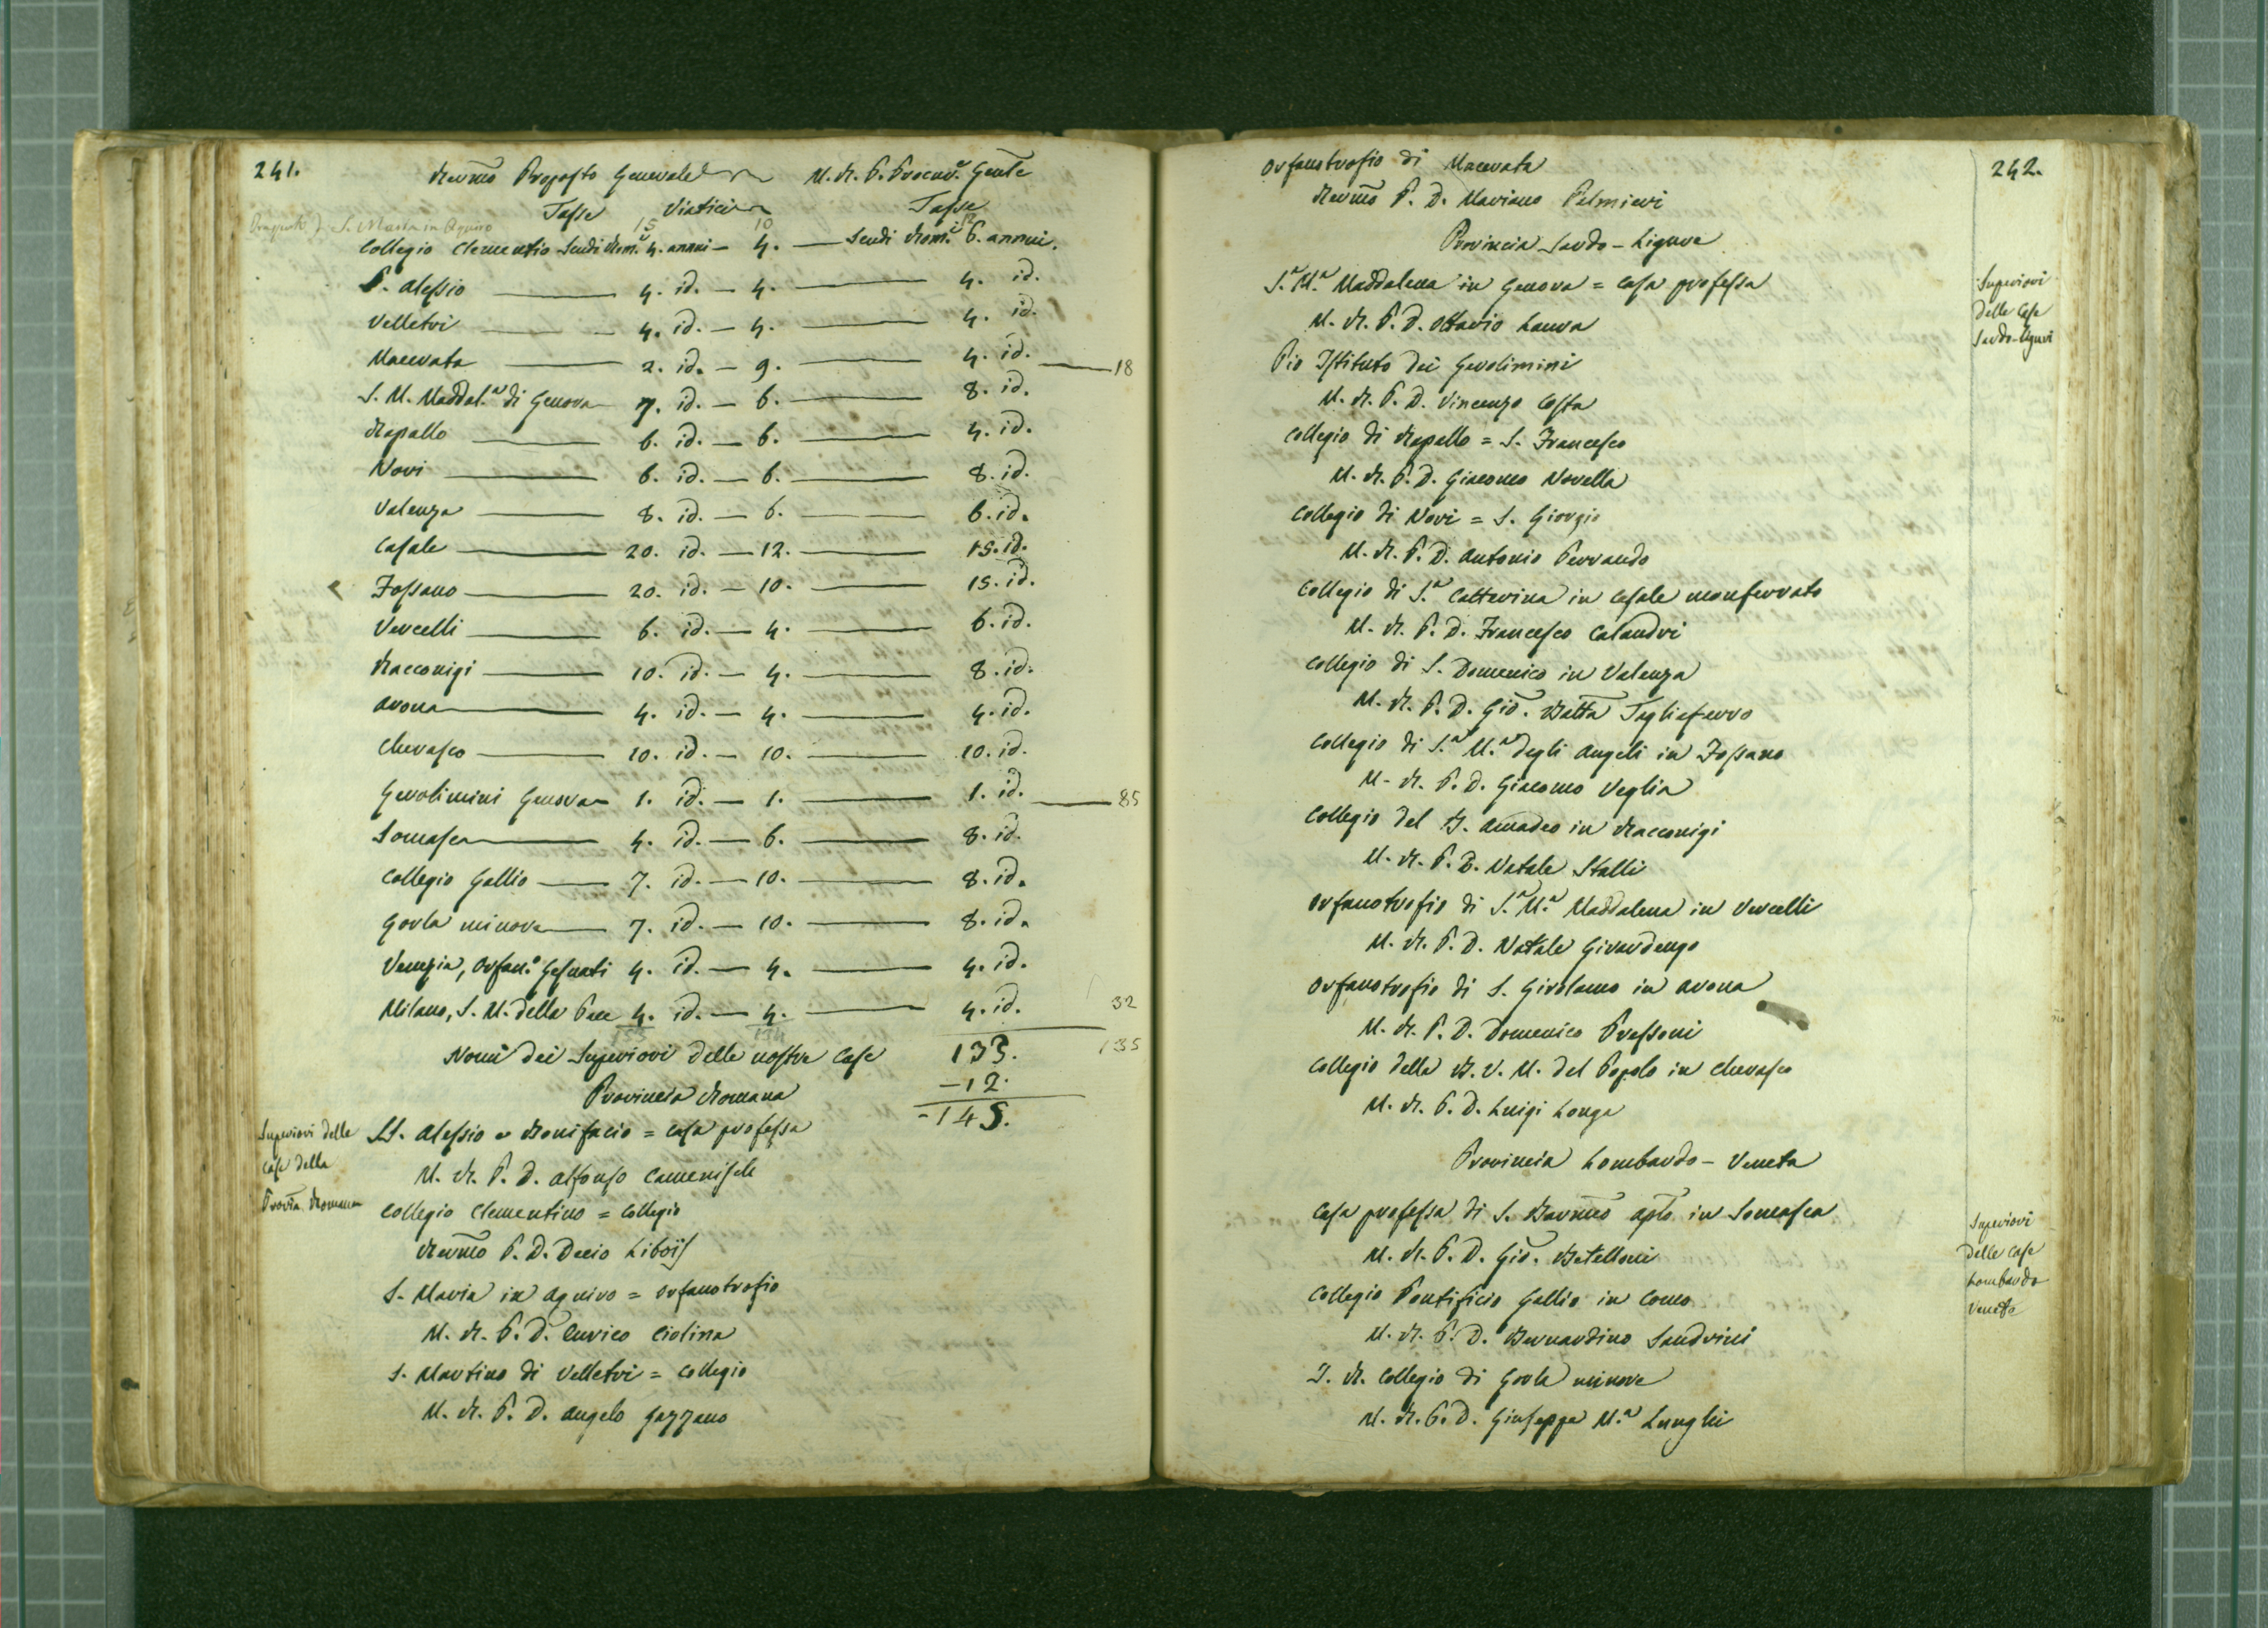 241.
Revmo Proposto Generale M. R. P. Procur.e Genle
Tasse Viatici Tasse
S. Maria in Aquiro 15 10 12
Collegio Clementio Scudi Rom.i 4. annui — 4. — Scudi Rom.i 6. annui.
S. Alessio — 4. id. — 4. — 4. id.
Velletri — 4. id. — 4. — 4. id.
Macerata — 2. id. — 9. — 4. id. — 18
S. M. Maddal.a di Genova 7. id. — 6. — 8. id.
Rapallo — 6. id. — 6. — 4. id.
Novi — 6. id. — 6. — 8. id.
Valenza — 8. id. — 6. — 6. id.
Casale — 20. id. — 12. — 15. id.
Fossano — 20. id. — 10. — 15. id.
Vercelli — 6. id. — 4. — 6. id.
Racconigi — 10. id. — 4. — 8. id.
Arona — 4. id. — 4. — 4. id.
Cherasco — 10. id. — 10. — 10. id.
Gerolimini Genova 1. id. — 1. — 1. id. — 85
Somasca — 4. id. — 6. — 8. id.
Collegio Gallio — 7. id. — 10. — 8. id.
Gorla minore — 7. id. — 10. — 8. id.
Venezia, Orfan.o Gesuati 4. id. — 4. — 4. id.
Milano, S. M. della Pace 4. id. — 4. — 4. id. 32
Nomi dei Superiori delle nostre Case 133. 135
— 12.
Provincia Romana
- 145.
Superiori delle
Case della
Provia Romana
SS. Alessio e Bonifacio = casa professa
M. R. P. D. Alfonso Camenisch
Collegio Clementino = Collegio
Revmo P. D. Decio Libois
S. Maria in Aquiro = orfanotrofio
M. R. P. D. Enrico Ciolina
S. Martino di Velletri = Collegio
M. R. P. D. Angelo Gazzano
242.
Orfanotrofio di Macerata
Revmo P. D. Mariano Palmieri
Provincia Sardo-Ligure
Superiori
delle Case
Sardo-Liguri
S.a M.a Maddalena in Genova = casa professa
M. R. P. D. Ottavio Laura
Pio Istituto dei Gerolimini
M. R. P. D. Vincenzo Costa
Collegio di Rapallo = S. Francesco
M. R. P. D. Giacomo Novella
Collegio di Novi = S. Giorgio
M. R. P. D. Antonio Ferrando
Collegio di S.a Catterina in Casale monferrato
M. R. P. D. Francesco Calandri
Collegio di S. Domenico in Valenza
M. R. P. D. Gio. Batta Tagliaferro
Collegio di S.a M.a degli Angeli in Fossano
M. R. P. D. Giacomo Veglia
Collegio del B. Amadeo in Racconigi
M. R. P. D. Natale Stalli
Orfanotrofio di S.a M.a Maddalena in Vercelli
M. R. P. D. Natale Girardengo
Orfanotrofio di S. Girolamo in Arona
M. R. P. D. Domenico Pressoni
Collegio della B. V. M. del Popolo in Cherasco
M. R. P. D. Luigi Longa
Provincia Lombardo-Veneta
Superiori
delle Case
Lombardo
Venete
Casa professa di S. Barmeo aplo in Somasca
M. R. P. D. Gio. Betelloni
Collegio Pontificio Gallio in Como
M. R. P. D. Bernardino Sandrini
I. R. Collegio di Gorla minore
M. R. P. D. Giuseppe M.a Lunghi